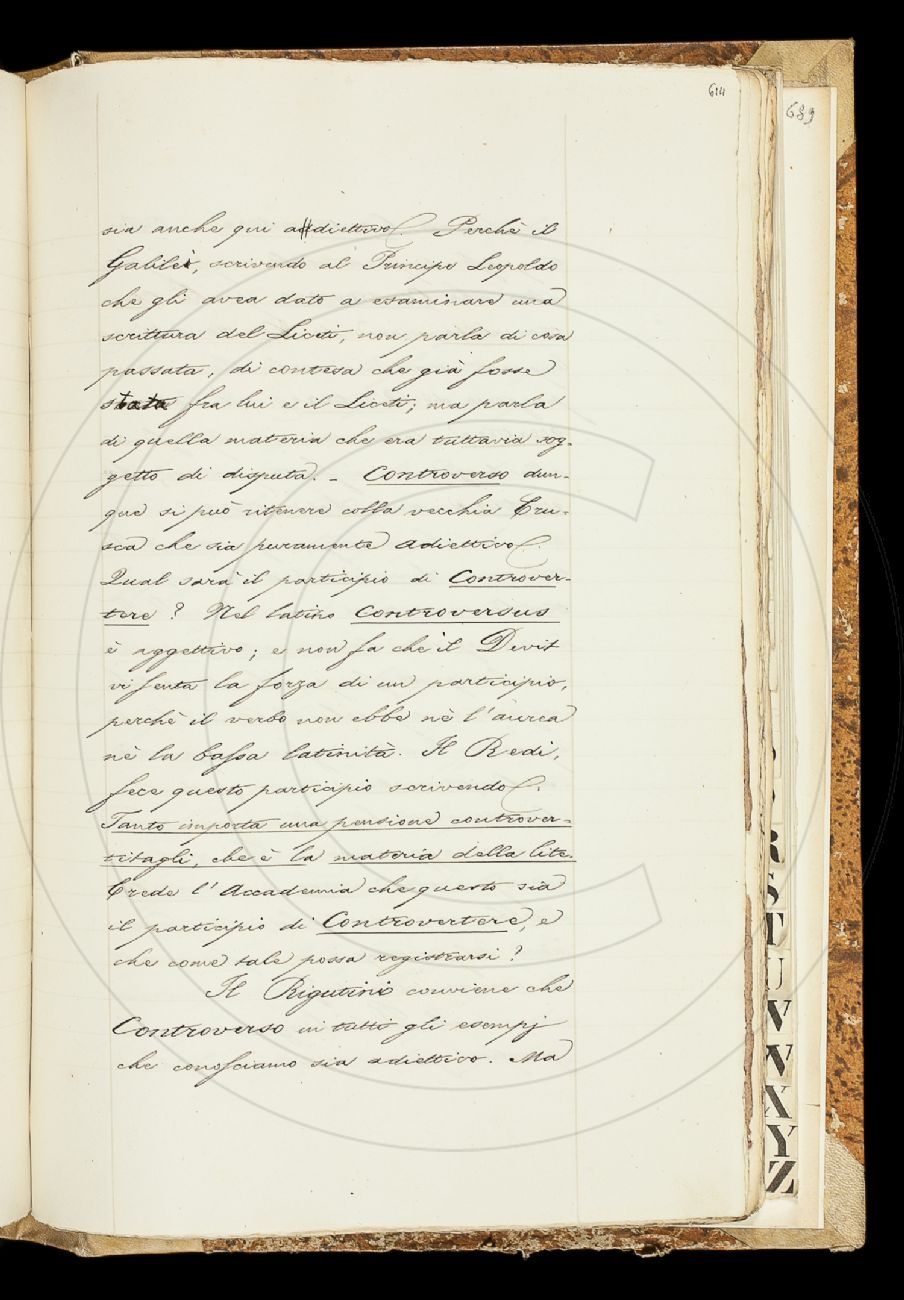 614
689
sia anche qui adiettivo. Perchè il
Galilei, scrivendo al Principe Leopoldo
che gli avea dato a esaminare una
scrittura del Liceti, non parla di cosa
passata, di contesa che già fosse
stata fra lui e il Liceti; ma parla
di quella materia che era tuttavia sog-
getto di disputa. - Controverso dun-
que si può ritenere colla vecchia Cru-
sca che sia puramente adiettivo.
Qual sarà il participio di Controver-
tere? Nel latino Controversus
è aggettivo; e non fa che il Devit
vi senta la forza di un participio,
perchè il verbo non ebbe nè l'aurea
nè la bassa latinità. Il Redi,
fece questo participio scrivendo.
Tanto importa una pensione controver-
titagli, che è la materia della lite.
Crede l'Accademia che questo sia
il participio di Controvertere, e
che come tale possa registrarsi?
Il Rigutini conviene che
Controverso in tutti gli esempj
che conosciamo sia adiettivo. Ma
R
S
T
U
V
W
X
Y
Z